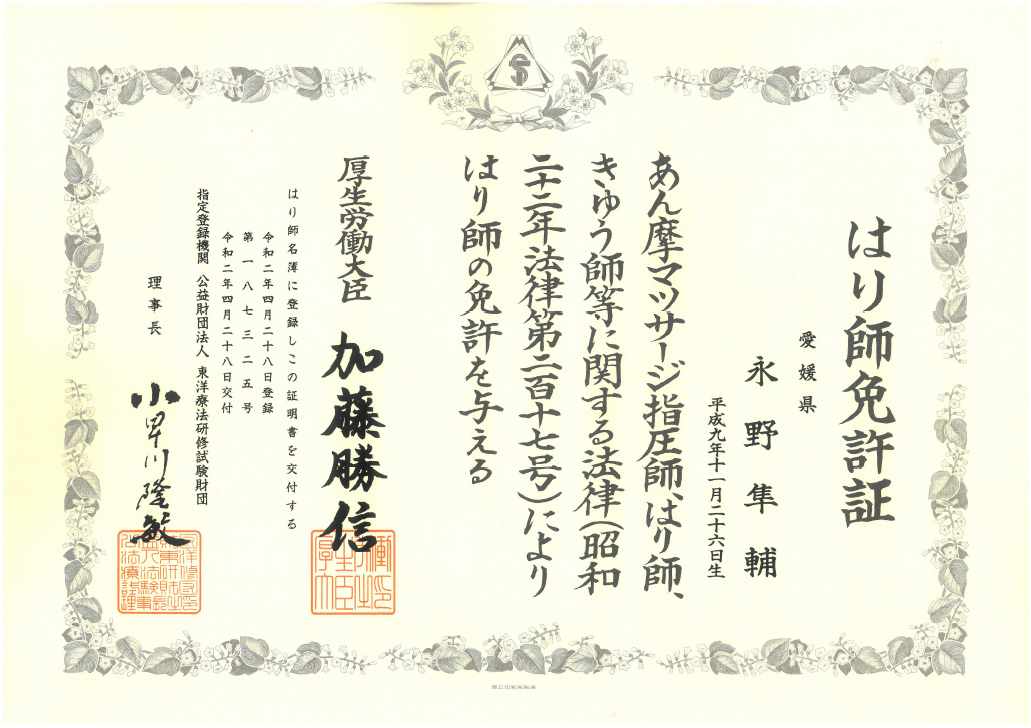 はり師免許証
愛媛県
永野隼輔
平成九年十一月二十六日生
あん摩マツサージ指圧師、はり師、
きゆう師等に関する法律(昭和
二十二年法律第二百十七号)により
はり師の免許を与える
厚生労働大臣 加藤勝信
はり師名簿に登録しこの証明書を交付する
令和二年四月二十八日登録
第一八七三二五号
令和二年四月二十八日交付
指定登録機関 公益財団法人 東洋療法研修試験財団
理事長 小川隆敏
国立印刷局製造